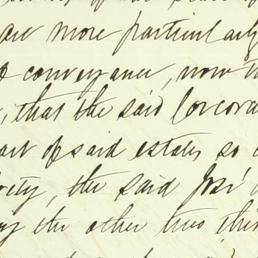 are more particularly
conveyance, now
that the said Corcora
art of said estates so
the said José
the other two thir